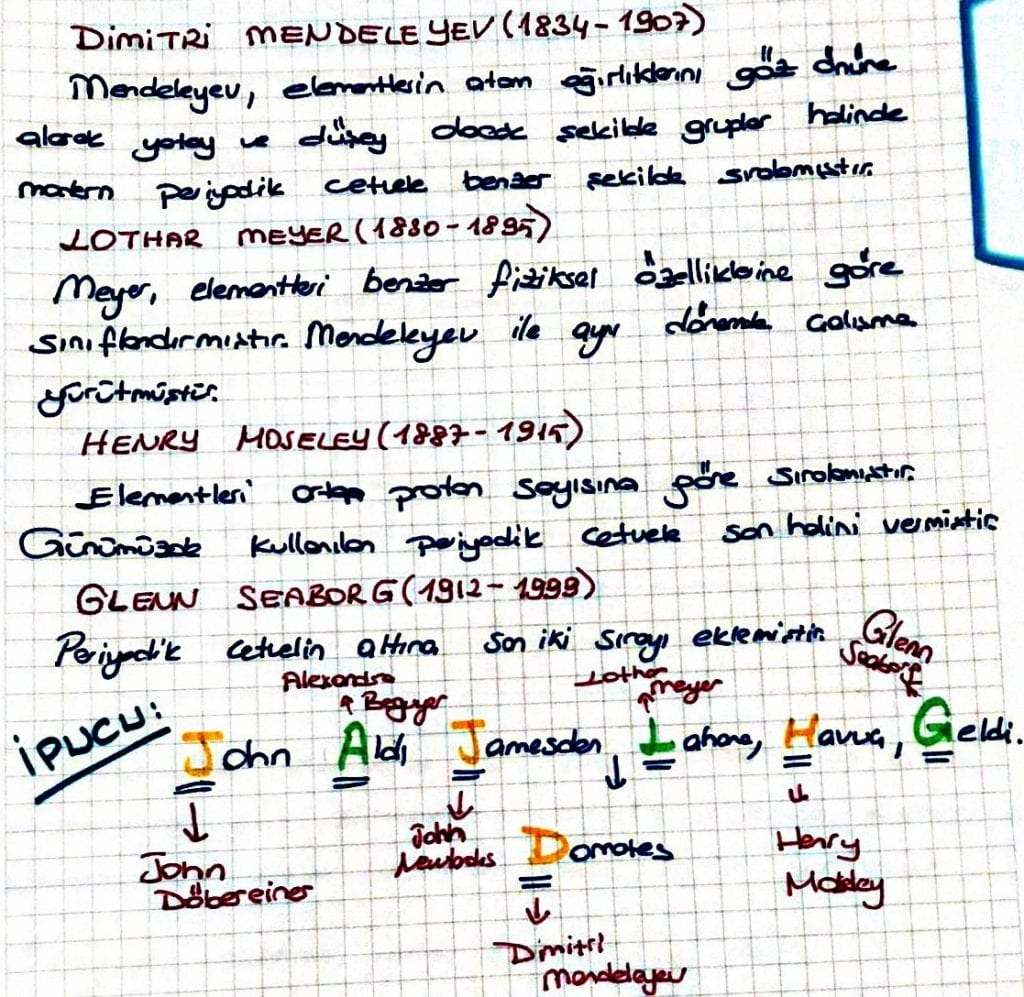 DİMİTRİ MENDELEYEV (1834-1907)
Mendeleyev, elementlerin atom ağırlıklarını göz önüne
alarak yatay ve düşey olacak şekilde gruplar halinde
modern periyodik cetvele benzer şekilde sıralamıştır.
LOTHAR MEYER (1830-1895)
Meyer, elementleri benzer fiziksel özelliklerine göre
sınıflandırmıştır. Mendeleyev ile aynı dönemde çalışma
yürütmüştür.
HENRY MOSELEY (1887-1915)
Elementleri artan proton sayısına göre sıralamıştır.
Günümüzde kullanılan periyodik cetvele son halini vermiştir
GLENN SEABORG (1912-1999)
Periyodik cetvelin altına son iki sırayı eklemiştir.
Glenn
Seaborg
Alexandre
Beguyer
Lothar
meyer
İPUCU: John Aldı, Jamesden Lahana, Havuç, Geldi.
Domates
John
Döbereiner
John
Newlands
Henry
Moseley
Dimitri
Mendeleyev